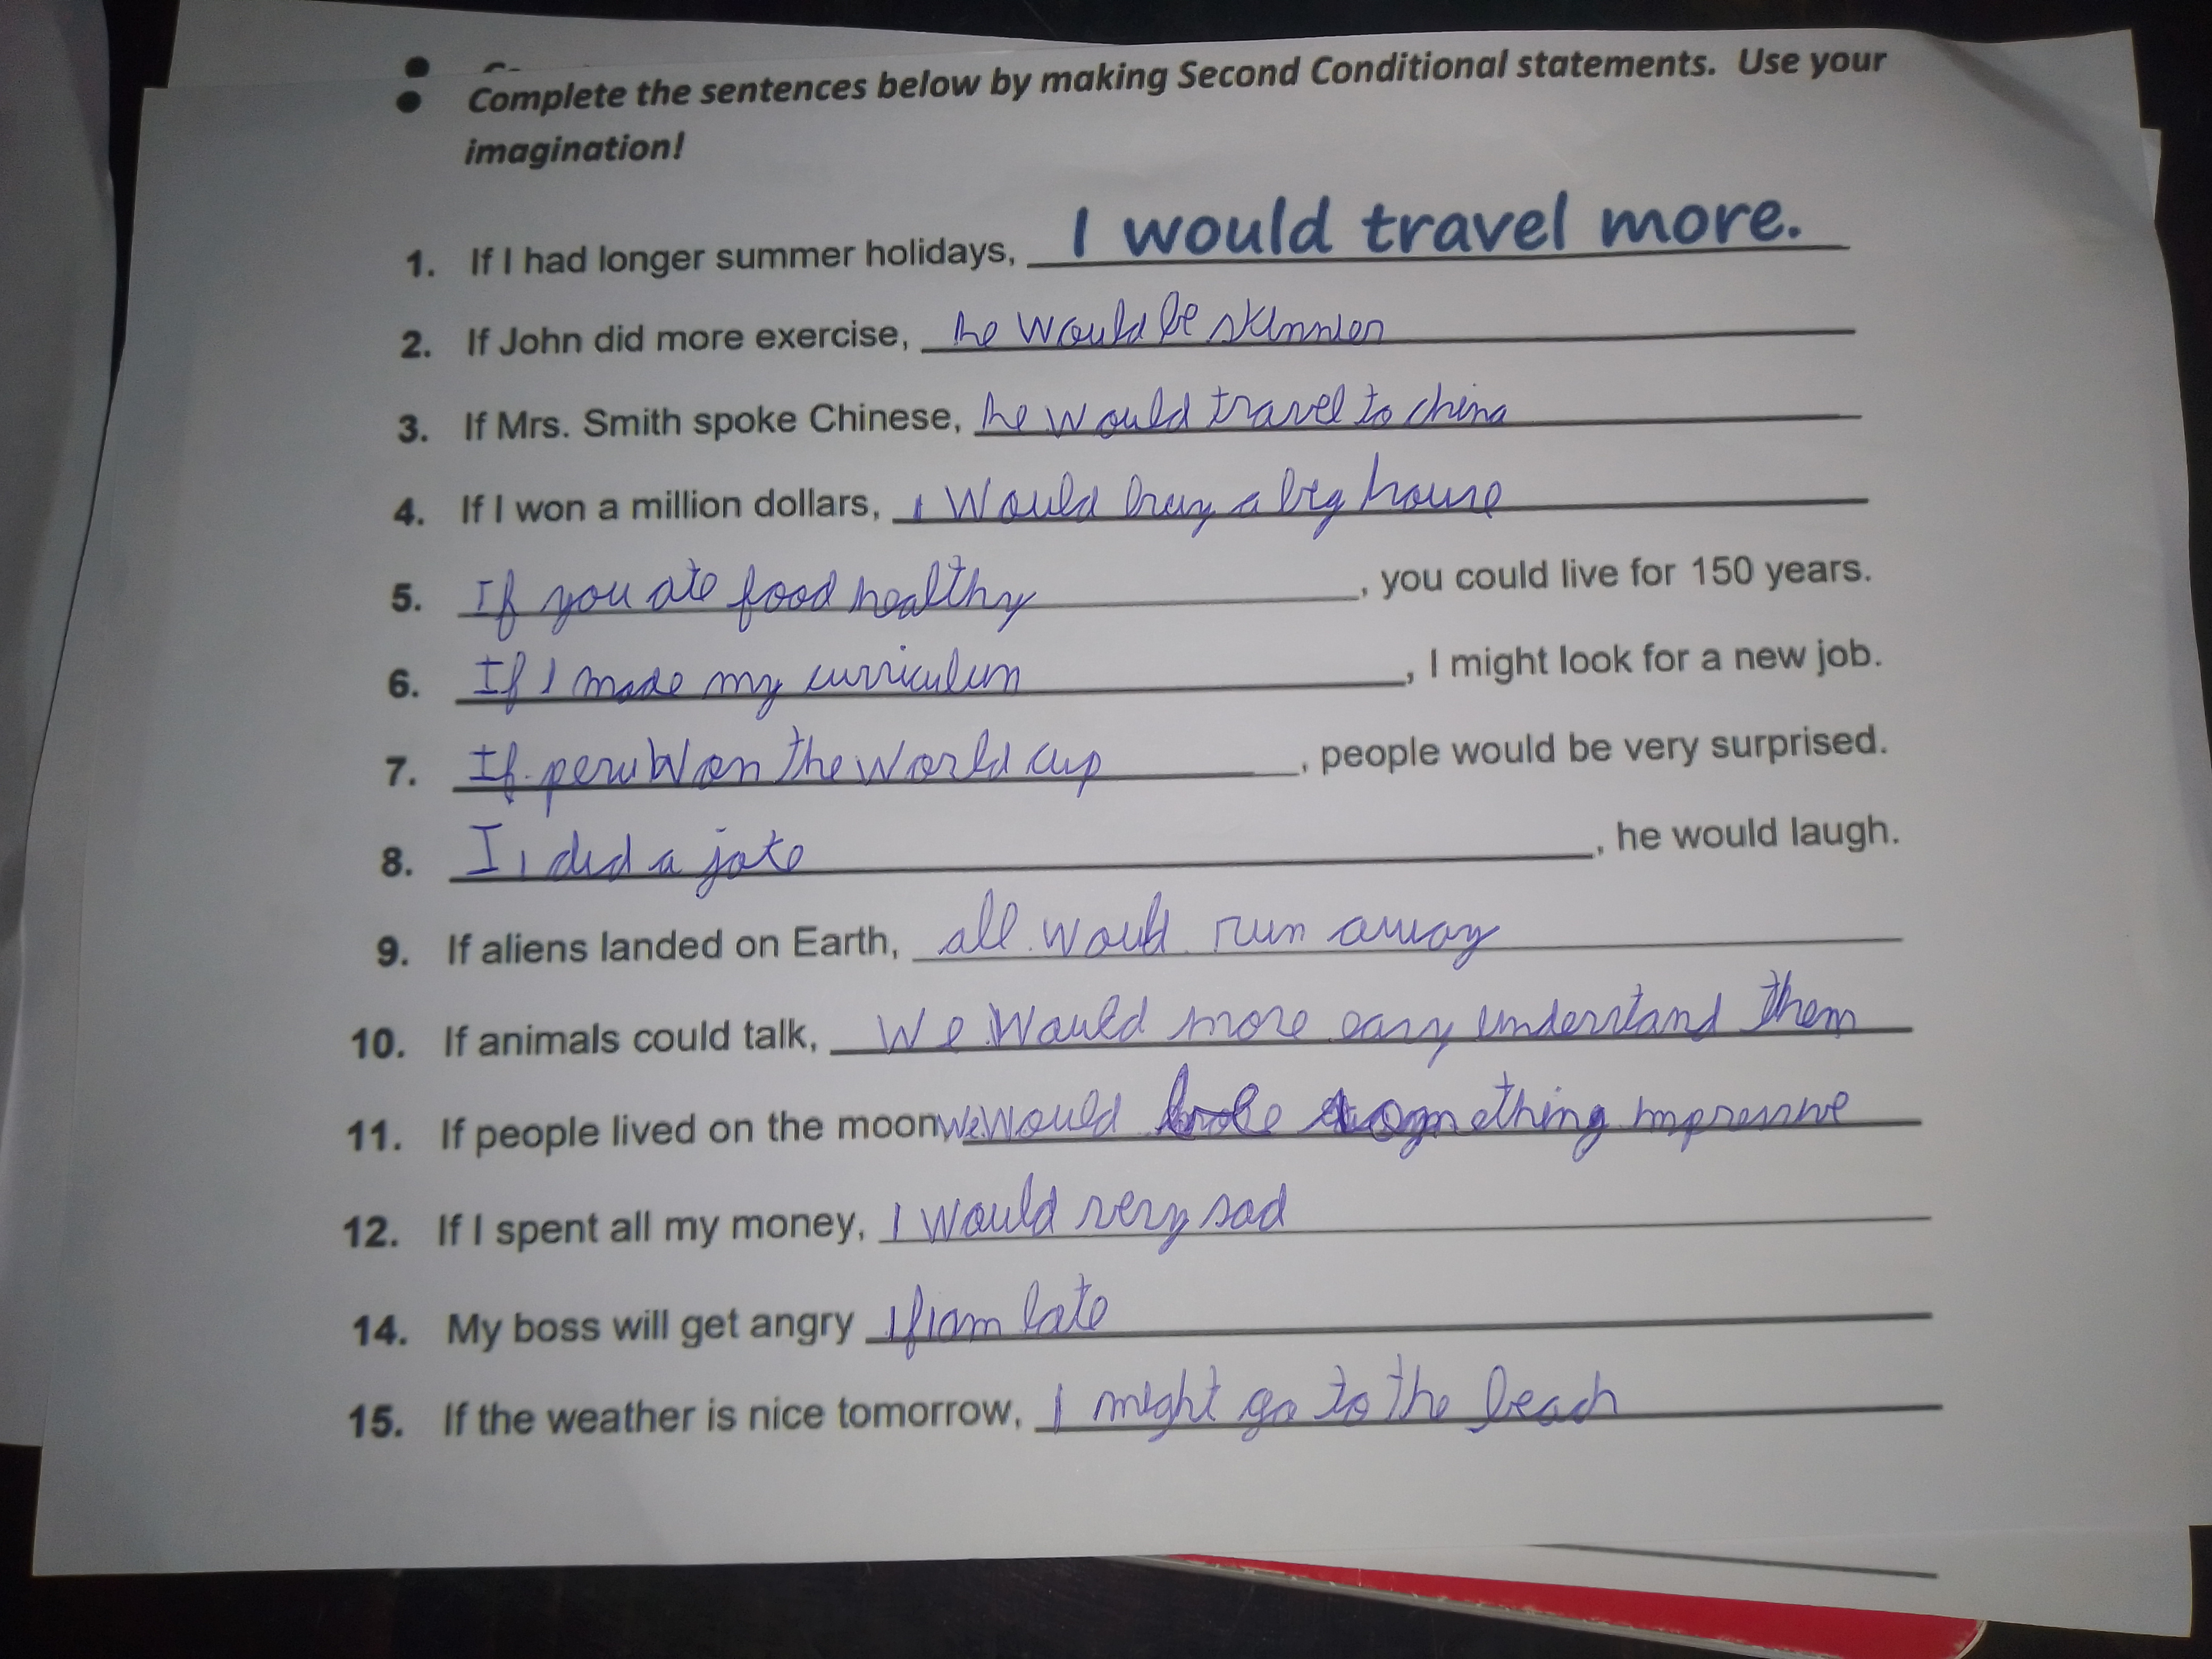 ● Complete the sentences below by making Second Conditional statements. Use your
imagination!
1. If I had longer summer holidays, I would travel more.
2. If John did more exercise, he would be skinnier
3. If Mrs. Smith spoke Chinese, he would travel to china
4. If I won a million dollars, I would buy a big house
5. If you ate food healthy, you could live for 150 years.
6. If I made my curriculum, I might look for a new job.
7. If peru won the world cup, people would be very surprised.
8. I i did a joke, he would laugh.
9. If aliens landed on Earth, all would run away
10. If animals could talk, we would more easy understand them
11. If people lived on the moon we would be something impressive
12. If I spent all my money, I would very sad
14. My boss will get angry if i am late
15. If the weather is nice tomorrow, I might go to the beach